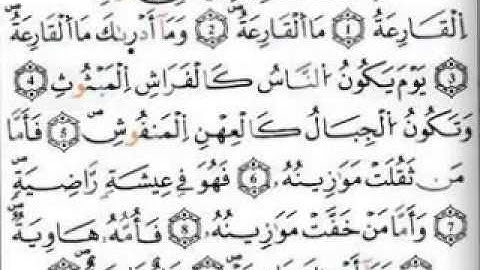 اِ۬لْقَارِعَةُ 1 مَا اَ۬لْقَارِعَةُ 2 وَمَآ أَدْر۪يٰكَ مَا اَ۬لْقَارِعَةُ
3 يَوْمَ يَكُونُ اُ۬لنَّاسُ كَالْفَرَاشِ اِ۬لْمَبْثُوثِ 4
وَتَكُونُ اُ۬لْجِبَالُ كَالْعِهْنِ اِ۬لْمَنفُوشِ 5 فَأَمَّا
مَن ثَقُلَتْ مَوَٰزِينُهُۥ 6 فَهُوَ فِے عِيشَةٖ رَّاضِيَةٖ
7 وَأَمَّا مَنْ خَفَّتْ مَوَٰزِينُهُۥ 8 فَأُمُّهُۥ هَاوِيَةٞ